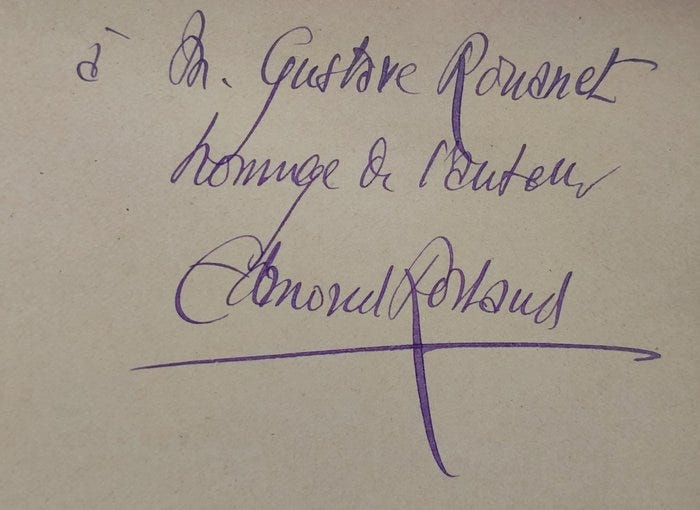 à M. Gustave Rouanet
hommage de l'auteur
Edmond Rostand